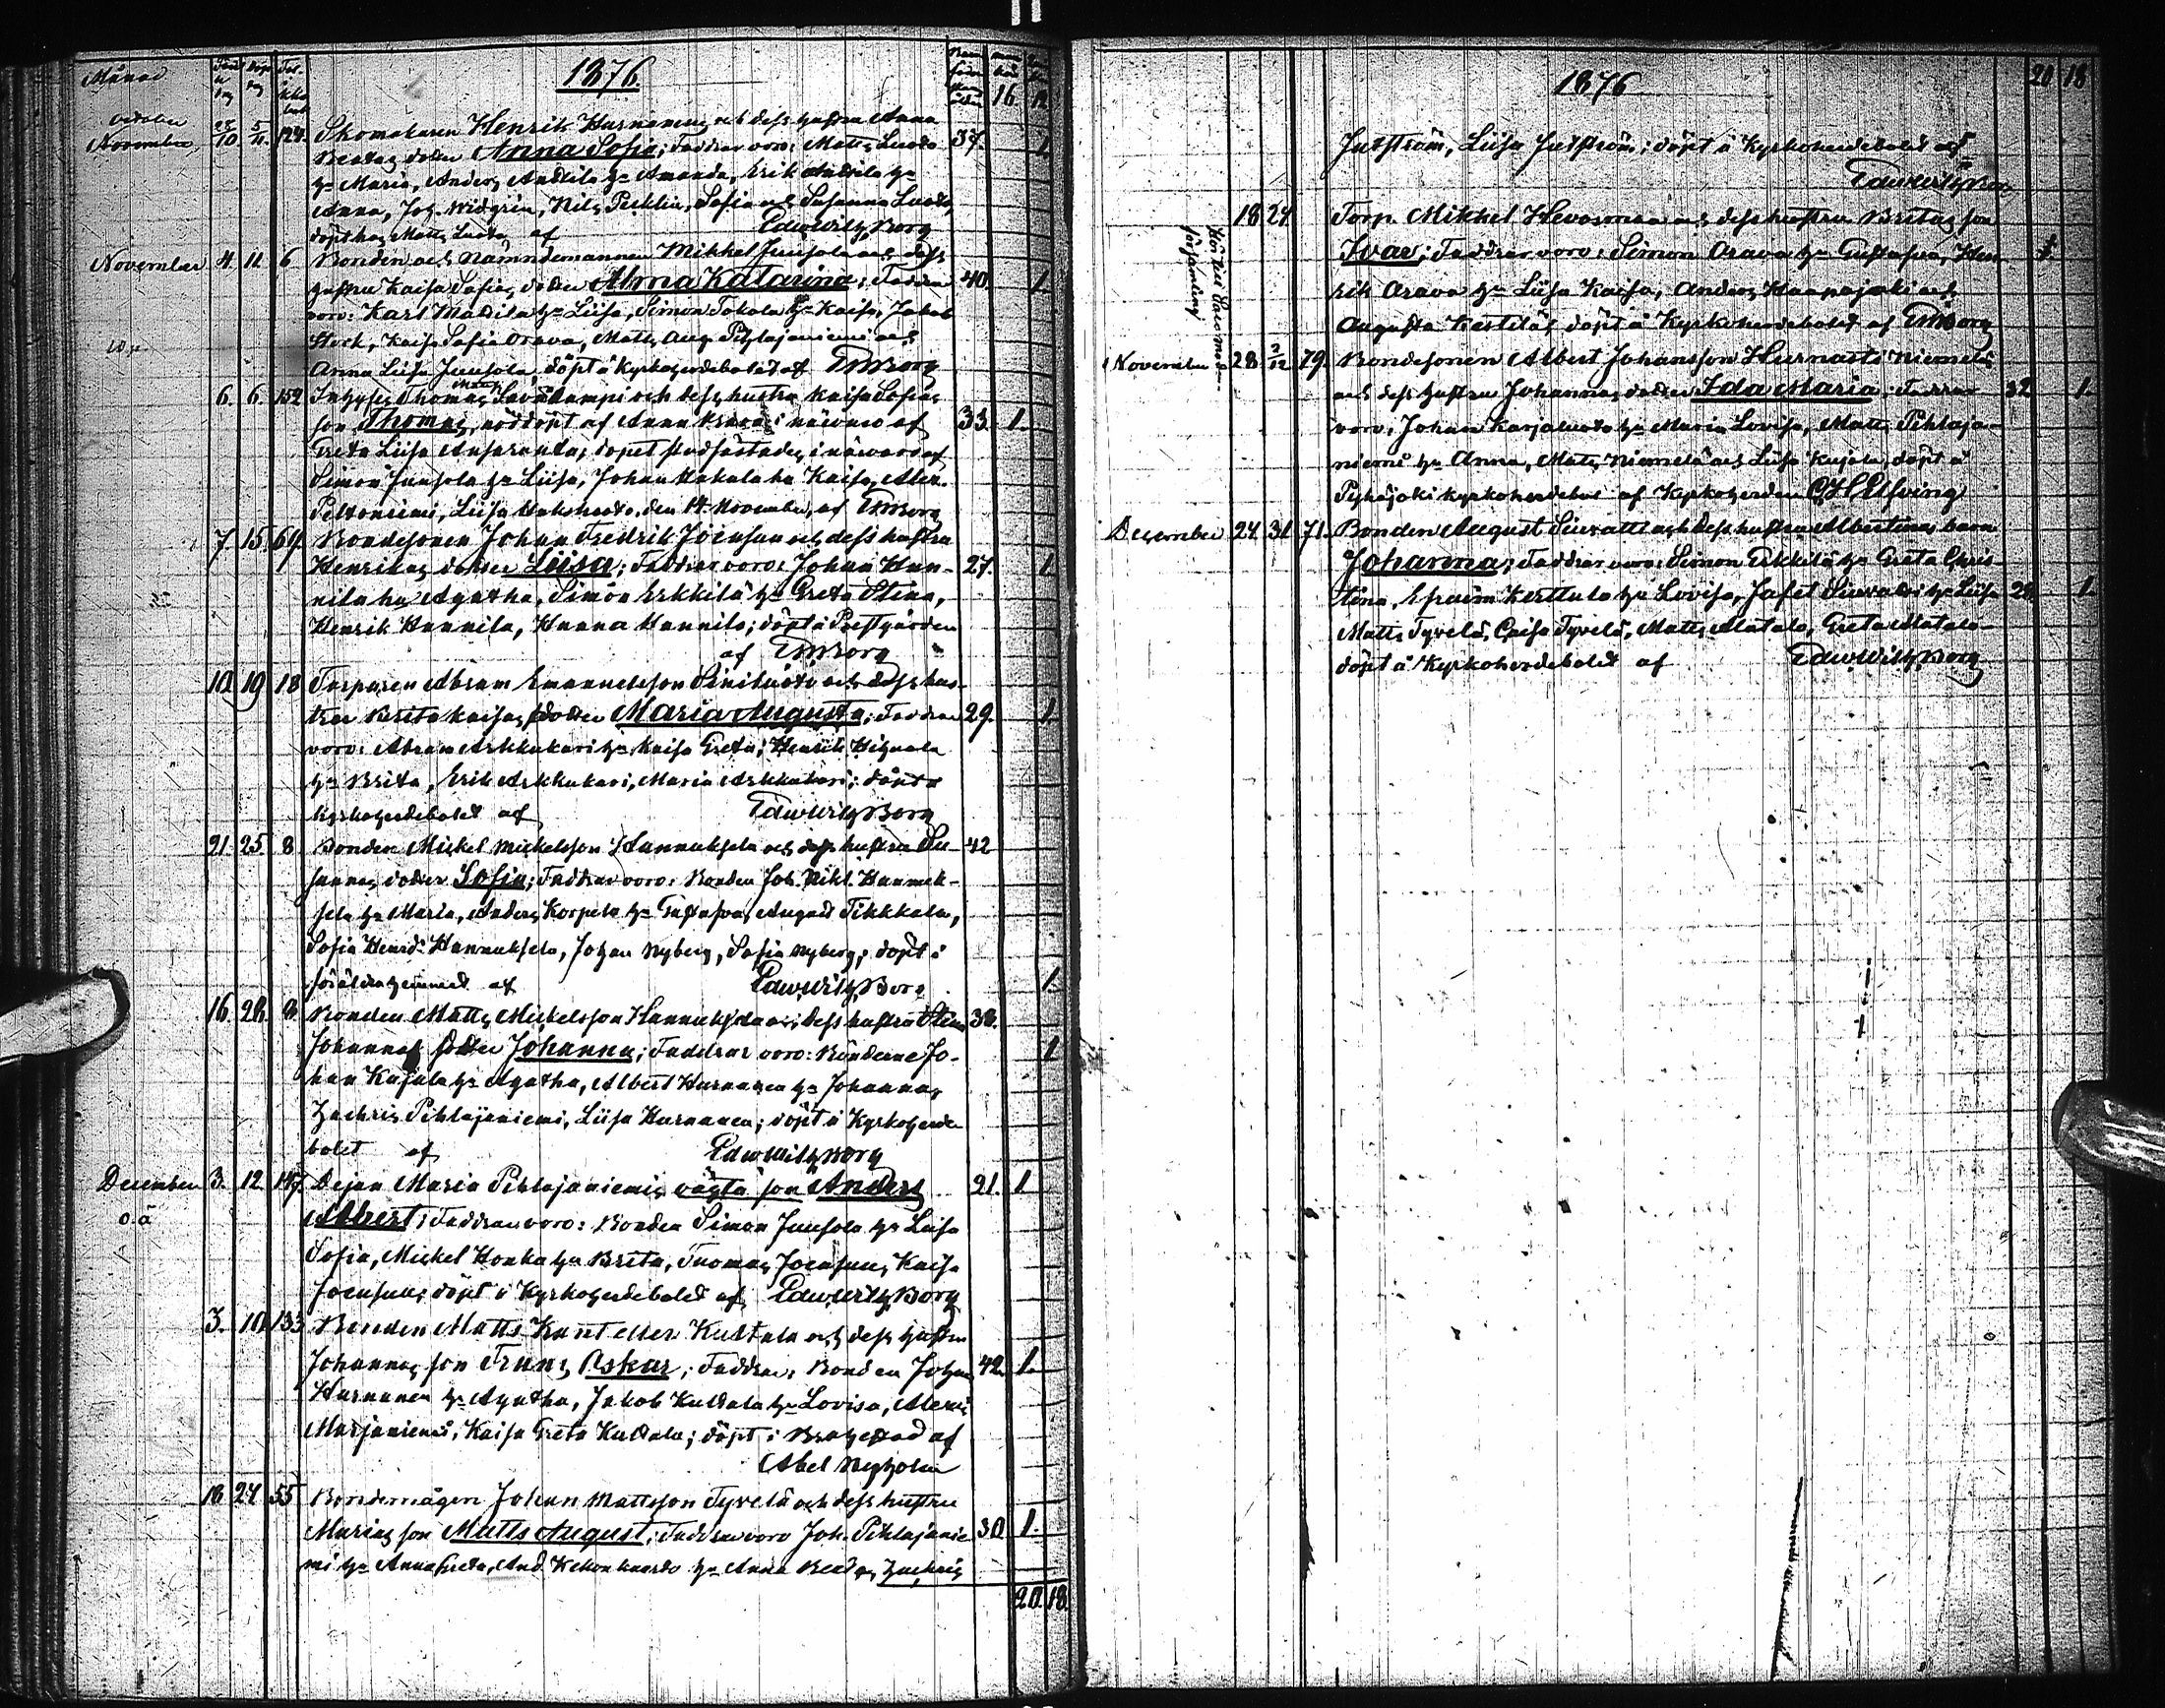 Månad
1876.
16. 12
October
November 28/10. 5/11. 124. Skomakaren Henrik Hurnanens och dess hustru Anna
Beatas dotter Anna Sofia; Faddrar voro: Matts Luoto 37. 1.
hu Maria, Anders Anttila hu Amanda, Erik Anttila hu
Anna, Joh. Widgrén, Nils Pecklin, Sofia och Susanna Luoto,
döpt hos Matts Luoto af Edw Wilh Borg
November 4. 12 6 Bonden och Nämndemannen Mikkel Juusola och dess
hustru Kaisa Sofias dotter Alma Katarina; Faddrar 40. 1.
voro: Karl Mattila hu Liisa, Simon Tokola hu Kaisa, Jakob
Stock, Kaisa Sofia Orava, Matts Aug. Pihlajaniemi och
Anna Liisa Juusola, döpt å Kyrkoherdebolet af EWBorg
6. 6. 152 Inhyses Thomas Savilampi och dess hustru Kaisa Sofias
son Thomas, nöddöpt af Anna i närvaro af 33. 1.
Greta Liisa dopet stadfästades i närvaro af
Simon Juusola hu Liisa, Johan Hakala hu Kaisa, Alex.
Peltoniemi, Liisa den 14 November, af EWBorg
7. 15. 64. Bondesonen Johan Fredrik Joensuu och dess hustru
Henrikas dotter Liisa; Faddrar voro: Johan Han- 27. 1
nila hu Agatha, Simon Erkkilä hu Greta Stina,
Henrik Hannila, Hanna Hannila; döpt å Prestgården
af EWBorg
10. 19 18 Torparen Abram Emanuelsson och dess hus-
trus Brita Kaisas dotter Maria Augusta; Faddrar 29. 1.
voro: Abram Arkkukari hu Kaisa Greta; Henrik
hu Brita, Erik Arkkukari, Maria Arkkukari; döpt å
Kyrkoherdebolet af Edw Wilh Borg
21. 25. 8 Bonden Mickel Mickelsson Hannuksela och dess hustru Su- 42
sannas dotter Sofia; Faddrar voro: Bonden Joh. Mikl. Hannuk-
sela hu Maria, Anders Korpela hu Gustafva, August Tikkala,
Sofia Henr.dr Hannuksela, Johan Nyberg, Sofia Nyberg; döpt i
föräldrahemmet af Edw Wilh Borg 1.
16. 26. 8. Bonden Matts Mickelsson Hannuksela och dess hustru Stina 38.
Johannas dotter Johanna; Faddrar voro: Bönderne Jo- 1
han Kujala hu Agatha, Albert Hurnanen hu Johanna,
Zachris Pihlajaniemi, Liisa Hurnanen; döpt å Kyrkoherde
bolet af Edw Wilh Borg
December 3. 12. 147. Dejan Maria Pihlajaniemis oägta son Anders 21. 1
o.ä Albert; Faddrar voro: Bonden Simon Juusola hu Liisa
Sofia, Mickel Honka hu Brita, Tuomas Joensuu, Kaisa
Joensuu; döpt å Kyrkoherdebolet af Edw Wilh Borg
3. 10. 133 Bonden Matts Kant eller Kultala och dess hustru
Johannas son Frans Oskar; Faddrar: Bonden Johan 42. 1.
Hurnanen hu Agatha, Jakob Kultala hu Lovisa, Alexis
Marjaniemi, Kaisa Greta Kultala; döpt i Brahestad af
Abel Nyholm
18 24 55 Bondemågen Johan Mattsson Tyvelä och dess hustru
Marias son Matts August; Faddrar voro Joh. Pihlajanie 30. 1.
mi hu Anna Greta, And. hu Anna Beata, Zachris
20. 18.
1876 20 18
Jutström, Liisa Jutström; döpt å Kyrkoherdebolet af
Edw Wilh Borg
18 24 Torp. Mikkel Hevosmaa och dess hustru Britas son
Ivar; Faddrar voro: Simon Orava hu Gustafva, Hen
rik Orava hu Liisa Kaisa, Anders Haapajoki och
Augusta Kestilä; döpt å Kyrkoherdebolet af EWBorg
November 28. 2/12 79. Bondesonen Albert Johansson Hurnasti Niemelä
och dess hustru Johannas dotter Ida Maria; Faddrar 32 1.
voro: Johan Karjaluoto hu Maria Lovisa, Matts Pihlaja-
niemi hu Anna, Matts Niemelä och Liisa Kujala, döpt å
Pyhäjoki kyrkoherdebol af Kyrkoherden C H Elfving
December 24 31 71. Bonden August Siuvatti och dess hustru Albertinas barn
Johanna; Faddrar voro: Simon Erkkilä hu Greta Chris
tina, Efraim Kerttula hu Lovisa, Jafet Siuvatti hu Liisa 29. 1.
Matts Tyvelä, Caisa Tyvelä, Matts Alatalo, Greta Alatalo
döpt å Kyrkoherdebolet af Edw Wilh Borg
församling